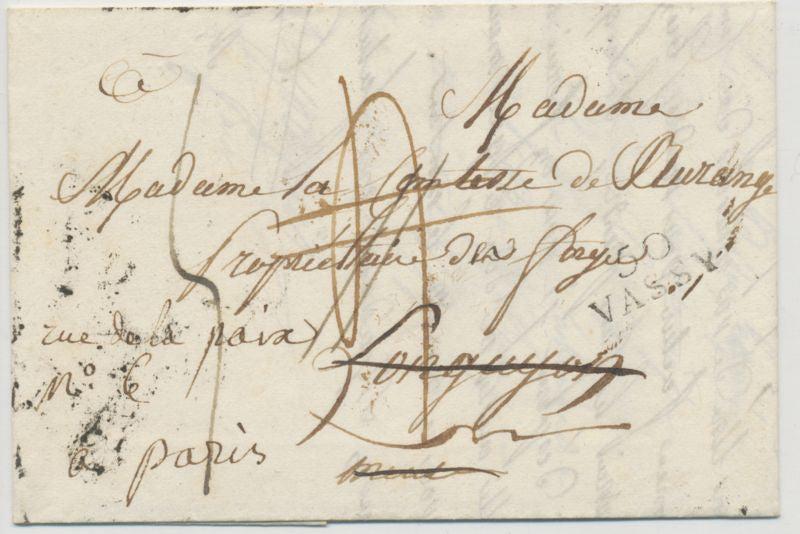 à
Madame
Madame la Comtesse de
Propriétaire des forges
50
VASSY
rue de la paix
N° 6
Longuyon
a paris